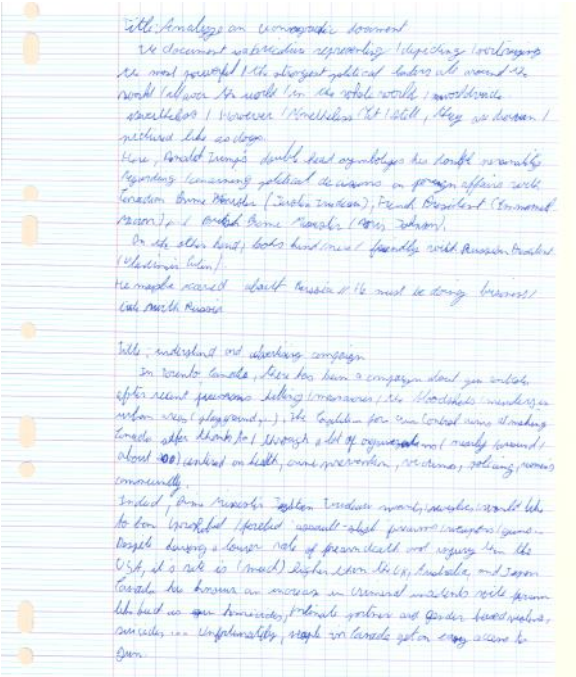 Title: Analyze an iconographic document
The document is a picture representing / depicting / portraying
the most powerful / the strongest political leaders all around the
world / all over the world / in the whole world / worldwide
nevertheless / However / Nonetheless / Yet / still, they are drawn /
pictured like as dogs.
Here, Donald Trump's double head symbolizes his double personality
regarding / concerning political decisions on foreign affairs with
Canadian Prime Minister (Justin Trudeau), French President (Emmanuel
Macron), and British Prime Minister (Boris Johnson).
On the other hand, looks kind / nice / friendly with Russian President
(Vladimir Putin).
He maybe scared about Russia // He must be doing business /
with Russia
Title: understand and advertising campaign
In Toronto Canada, there has been a campaign about gun
after recent firearms killing / massacres / the bloodsheds / murders in
urban areas (playground, ...), the Coalition for Gun Control aims at making
Canada safer thanks to / through a lot of organizations / nearly / around /
about 200) centred on health, crime prevention, victims, policing, women's
community.
Indeed, Prime Minister Trudeau would like
to ban assault-style firearms / weapons / guns
Despite having a lower rate of firearm death and injury than the
USA, it's rate is (much) higher than the UK, Australia, and Japan
Canada has known an increase in criminal incidents with firearm
like homicides, intimate partner and gender based violence,
suicides ... Unfortunately, people in Canada get an easy access to
gun.